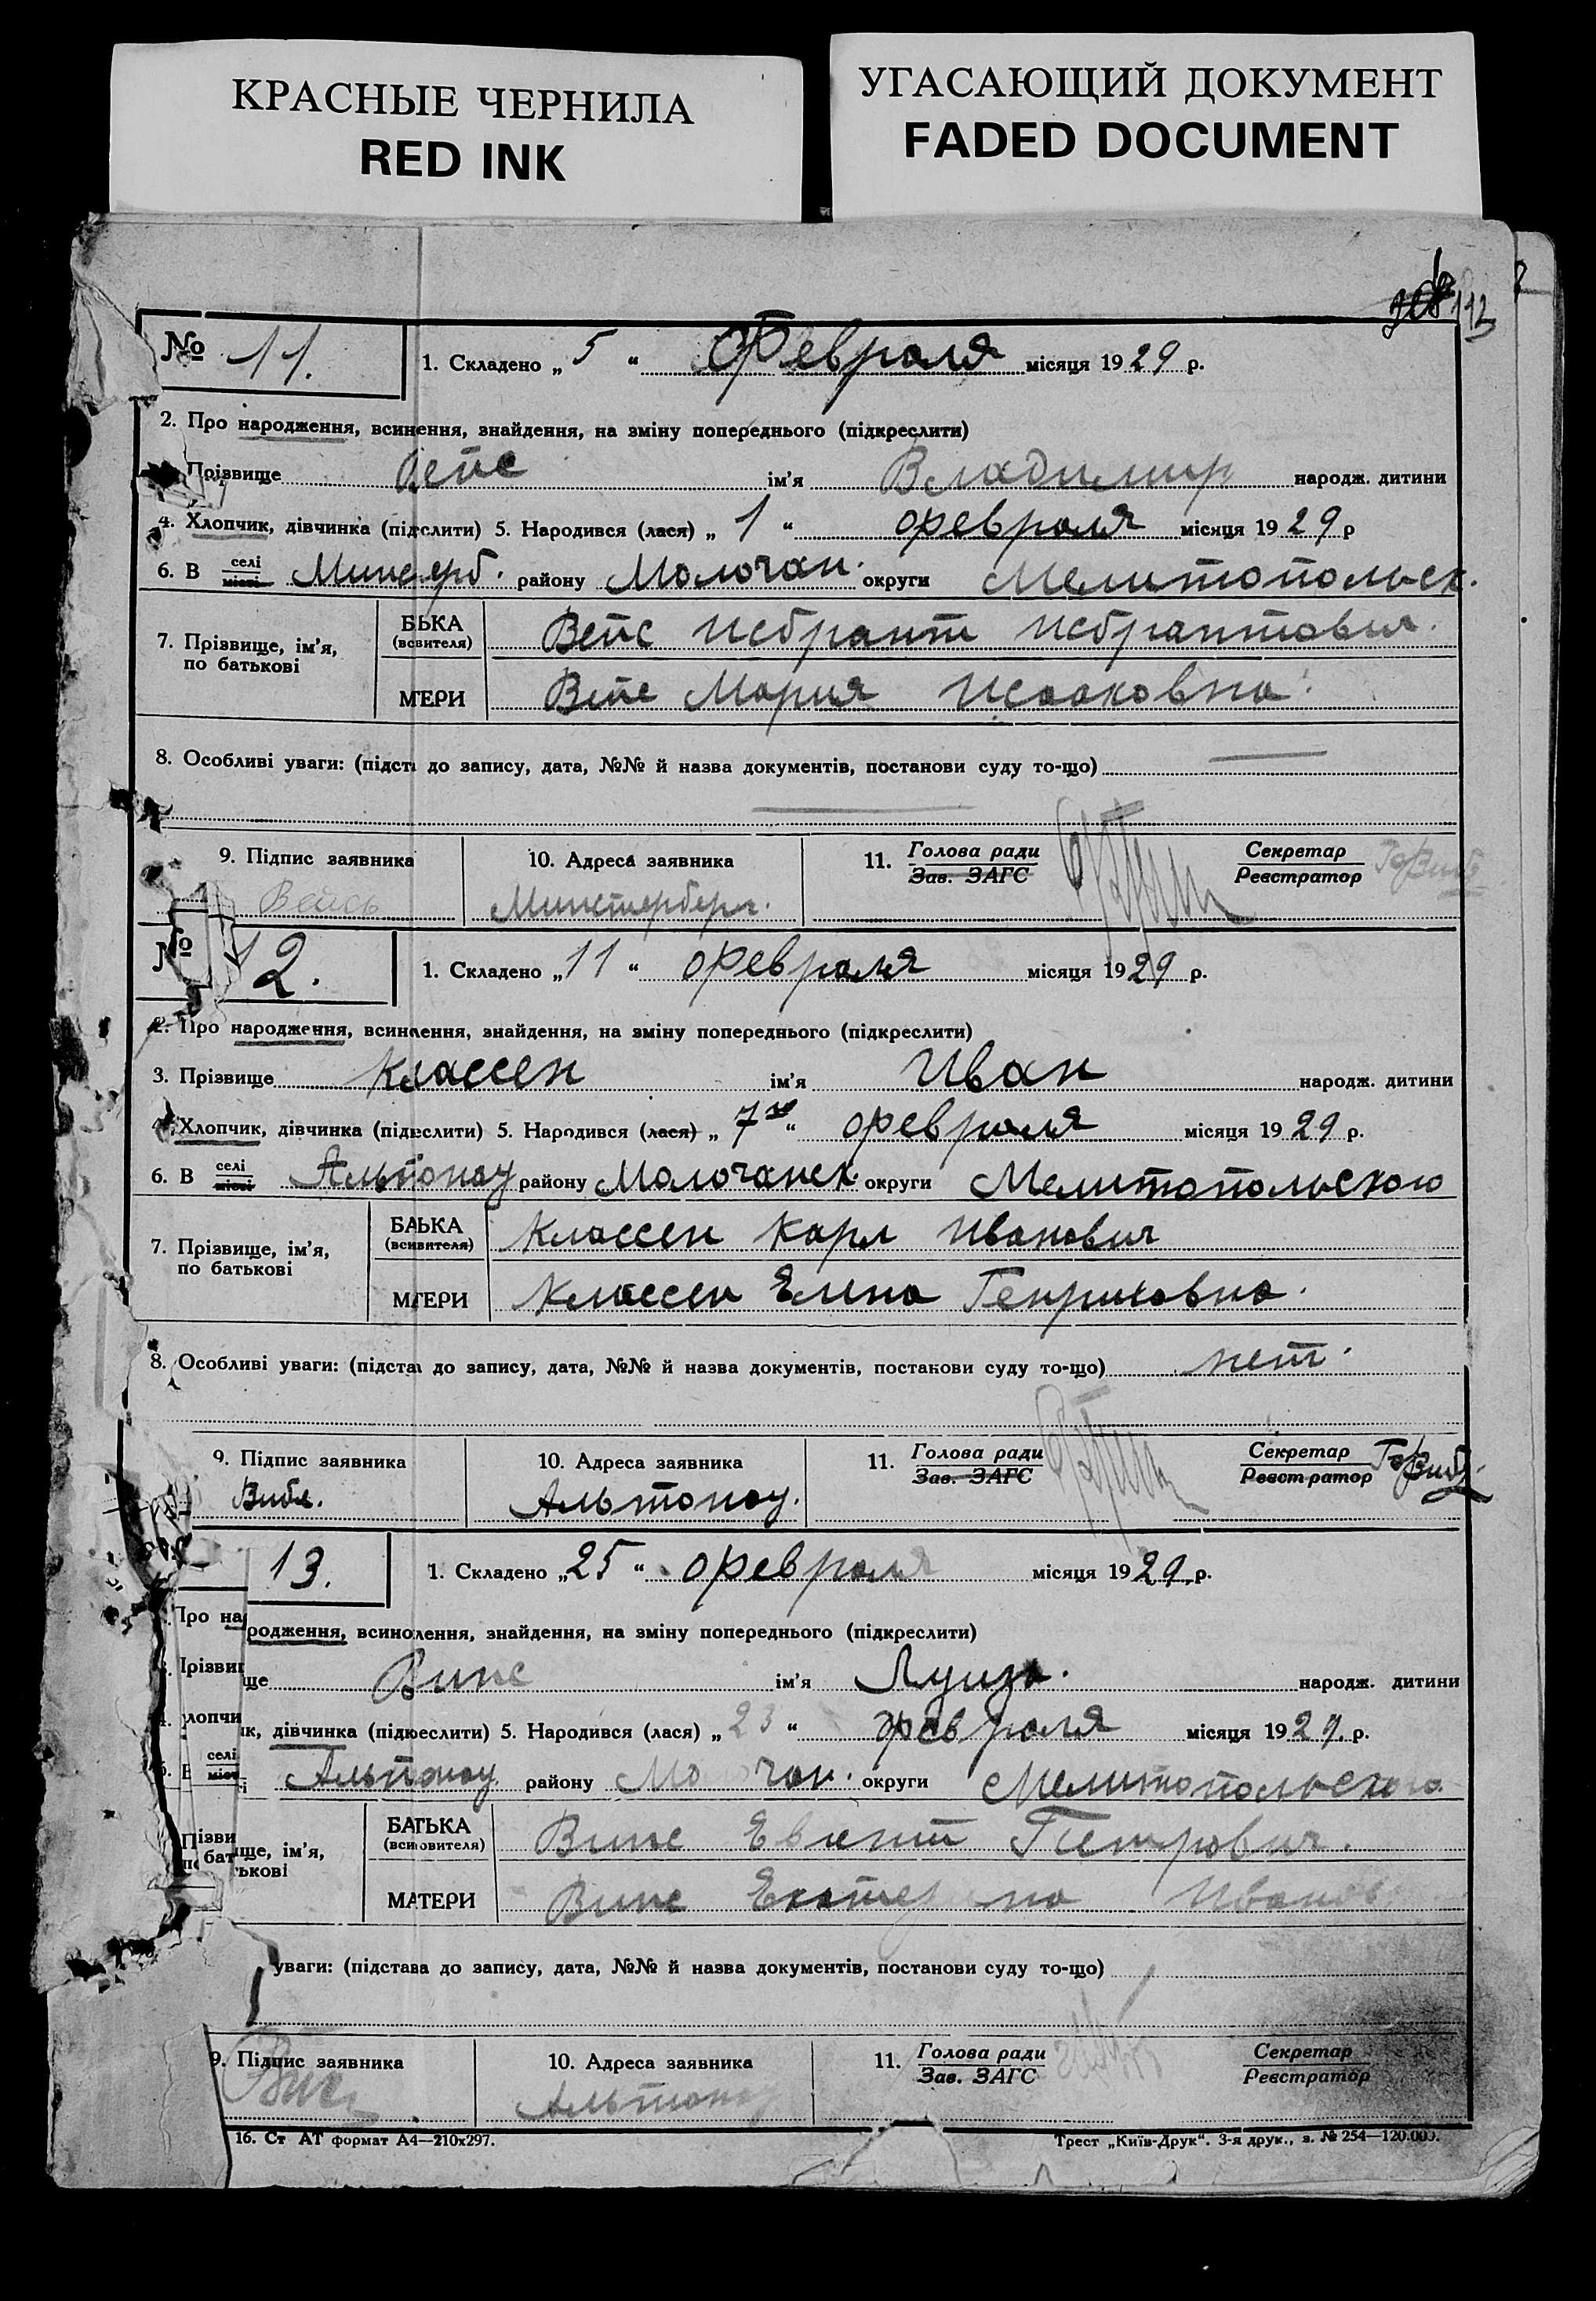 КРАСНЫЕ ЧЕРНИЛА
RED INK
УГАСАЮЩИЙ ДОКУМЕНТ
FADED DOCUMENT
№ 11. 1. Складено „ 5 “ Февраля місяця 1929 р.
2. Про народження, всинення, знайдення, на зміну попереднього (підкреслити)
Прізвище Вепс ім'я Владимир народж. дитини
4. Хлопчик, дівчинка (підкслити) 5. Народився (лася) „ 1 “ февраля місяця 1929 р
6. В селі місті району Молочан. округи Мелитопольск.
7. Прізвище, ім'я, по батькові
БЬКА (всвителя)
МТЕРИ Мария Исааковна.
8. Особливі уваги: (підста до запису, дата, №№ й назва документів, постанови суду то-що)
9. Підпис заявника 10. Адреса заявника 11. Голова ради Зав. ЗАГС Секретар Реєстратор
Минстерберг.
№ 12. 1. Складено „ 11 “ февраля місяця 1929 р.
2. Про народження, всинлення, знайдення, на зміну попереднього (підкреслити)
3. Прізвище Классен ім'я Иван народж. дитини
4. Хлопчик, дівчинка (підкеслити) 5. Народився (лася) „ 7го “ февраля місяця 1929 р.
6. В селі місті Альтонау району Молочанск. округи Мелитопольского
7. Прізвище, ім'я, по батькові
БАЬКА (вснвителя) Классен Карл Иванович
МТЕРИ Классен Елена Генриховна.
8. Особливі уваги: (підстаа до запису, дата, №№ й назва документів, постанови суду то-що) нет.
9. Підпис заявника 10. Адреса заявника 11. Голова ради Зав. ЗАГС Секретар Реєстратор
Вибе. Альтонау.
13. 1. Складено „ 25 “ февраля місяця 1929 р.
Про народження, всиновлення, знайдення, на зміну попереднього (підкреслити)
Прізвище Винс ім'я Луиза. народж. дитини
Хлопчик, дівчинка (підкеслити) 5. Народився (лася) „ 23 “ февраля місяця 1929. р.
селі місті Альтонау району округи Мелитопольского
Прізвище, ім'я, по батькові
БАТЬКА (всиновителя) Винс Петрович.
МАТЕРИ Винс
уваги: (підстава до запису, дата, №№ й назва документів, постанови суду то-що)
9. Підпис заявника 10. Адреса заявника 11. Голова ради Зав. ЗАГС Секретар Реєстратор
16. Ст АТ формат А4—210х297. Трест „Київ-Друк“. 3-я друк., з. № 254—120.000.